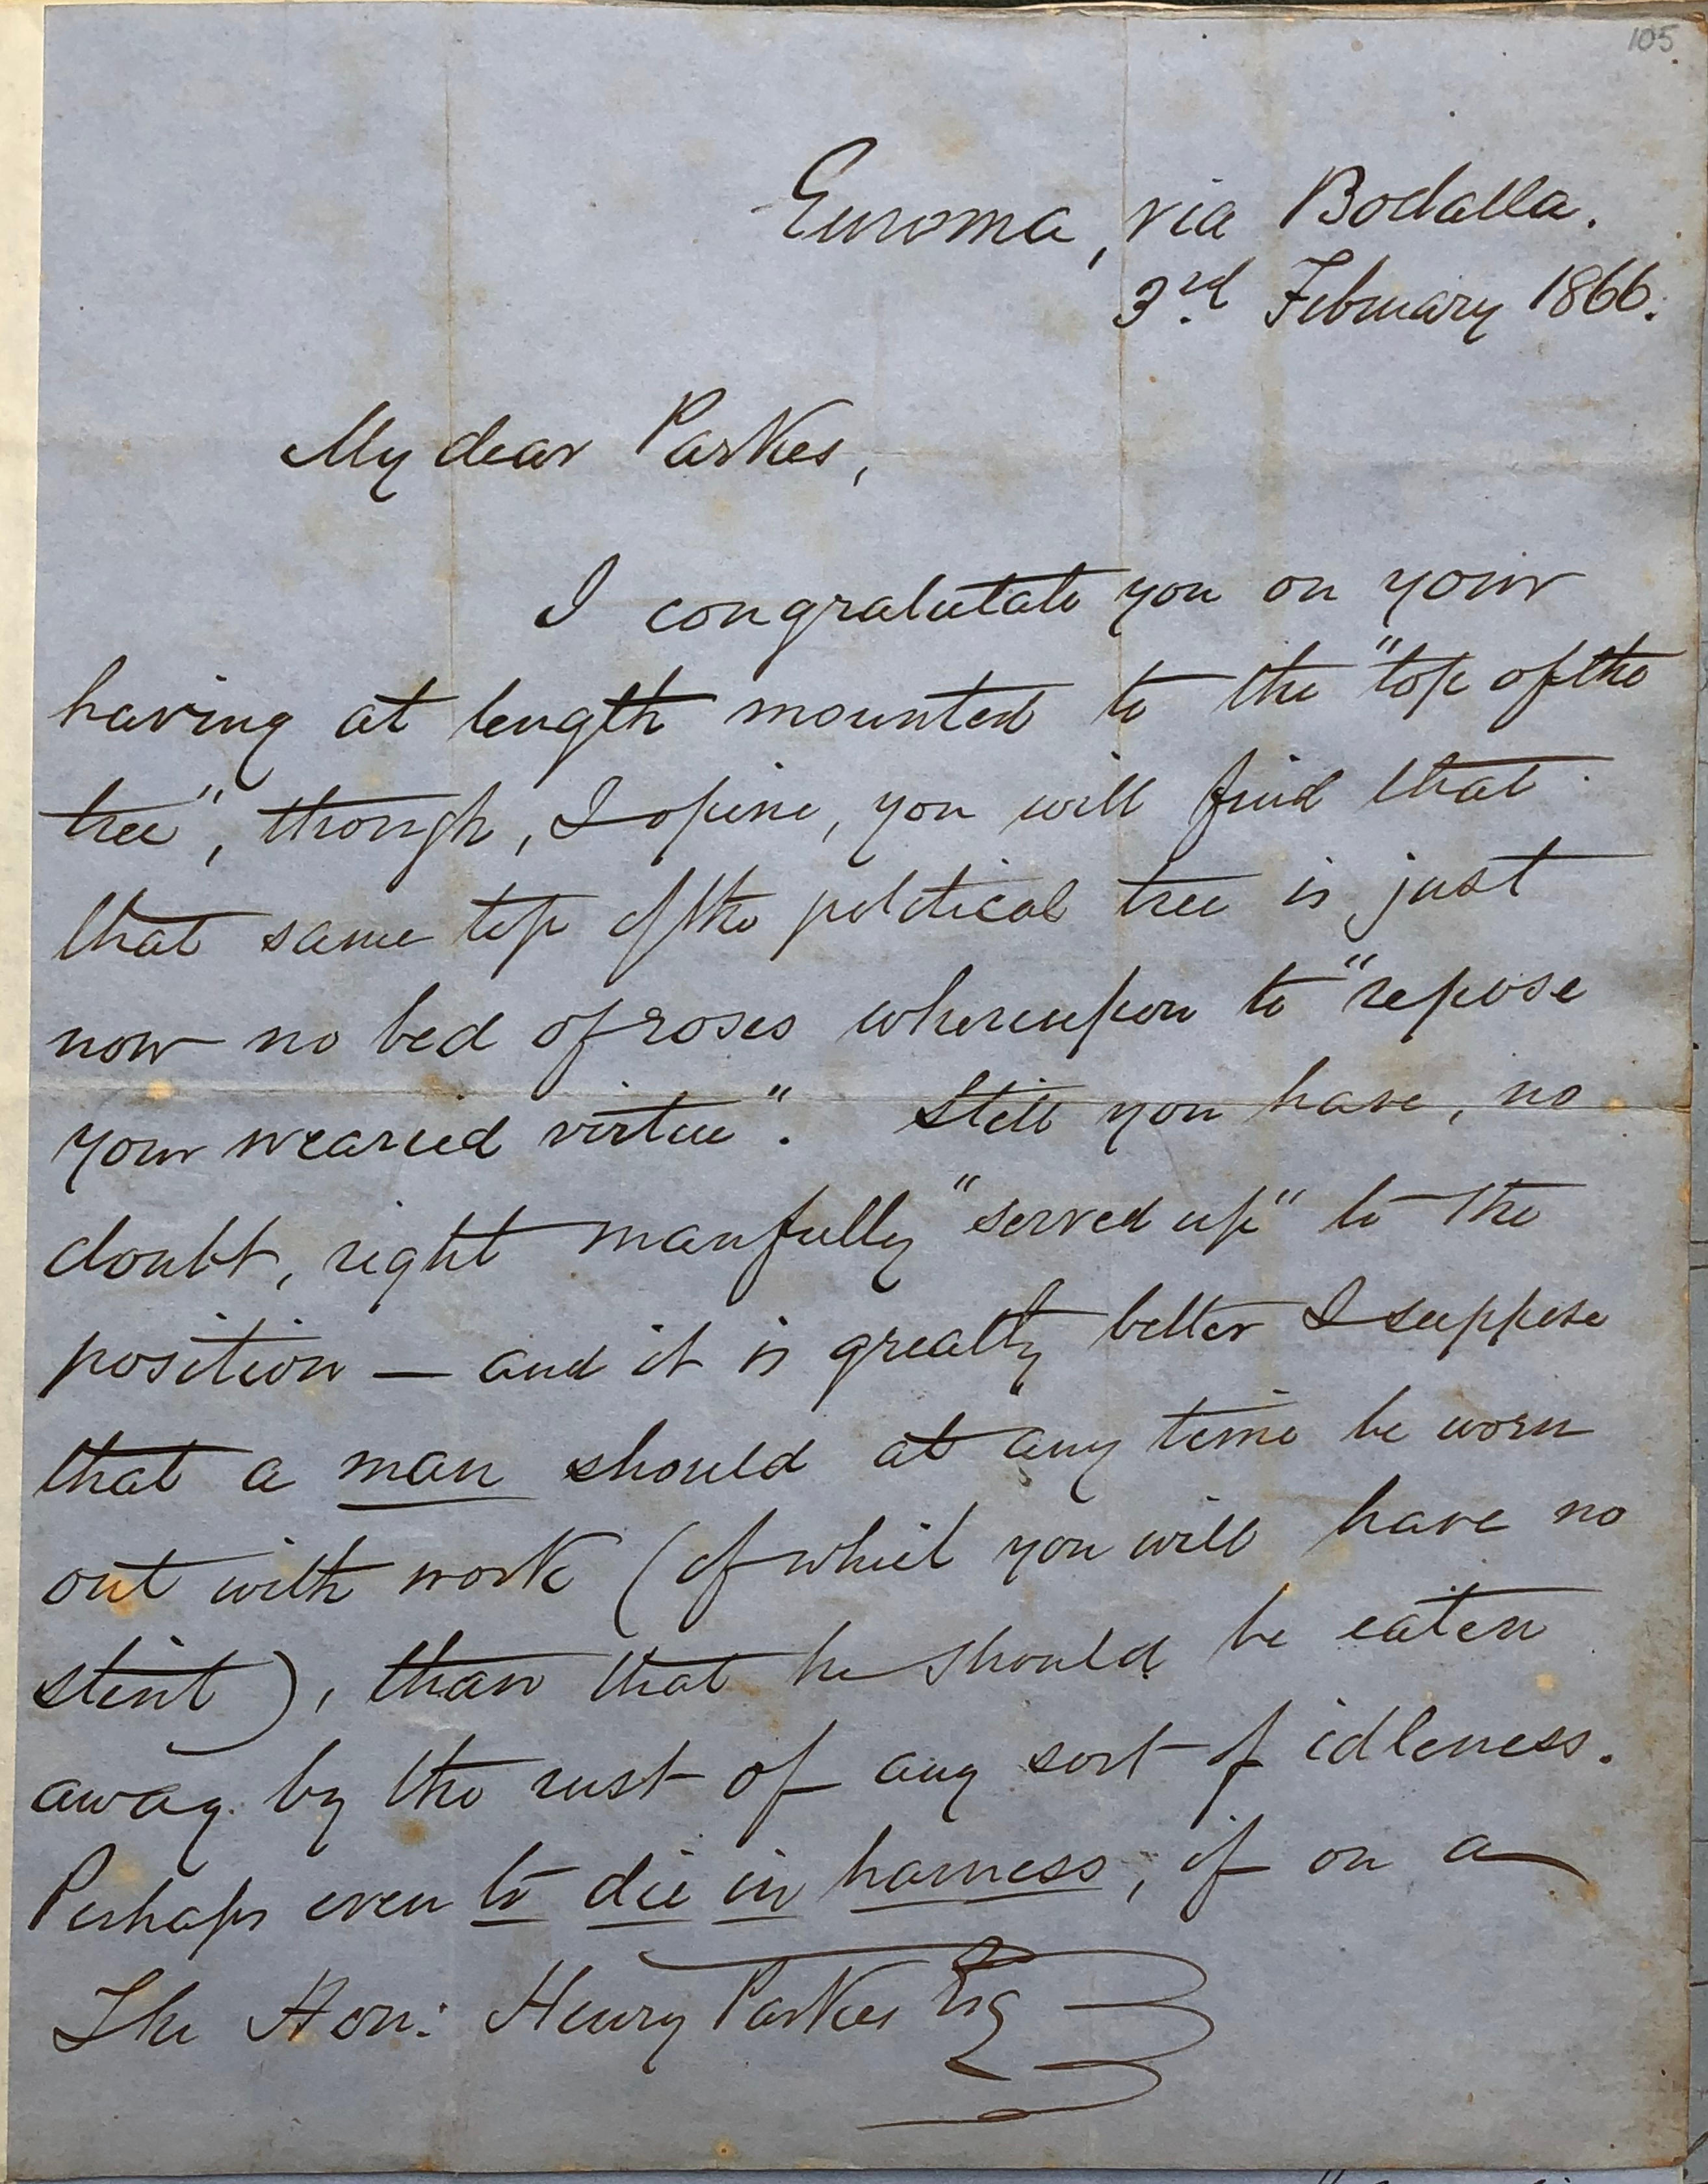 105
Euroma, via Bodalla.
3rd February 1866.
My dear Parkes,
I congratulate you on your
having at length mounted to the "top of the
tree", though, I opine, you will find that
that same top of the political tree is just
now no bed of roses whereupon to "repose
your wearied virtue". Still you have, no
doubt, right manfully "served up" to the
position — and it is greatly better I suppose
that a man should at any time be worn
out with work (of which you will have no
stint), than that he should be eaten
away by the rust of any sort of idleness.
Perhaps even to die in harness, if on a
The Hon: Henry Parkes Esq